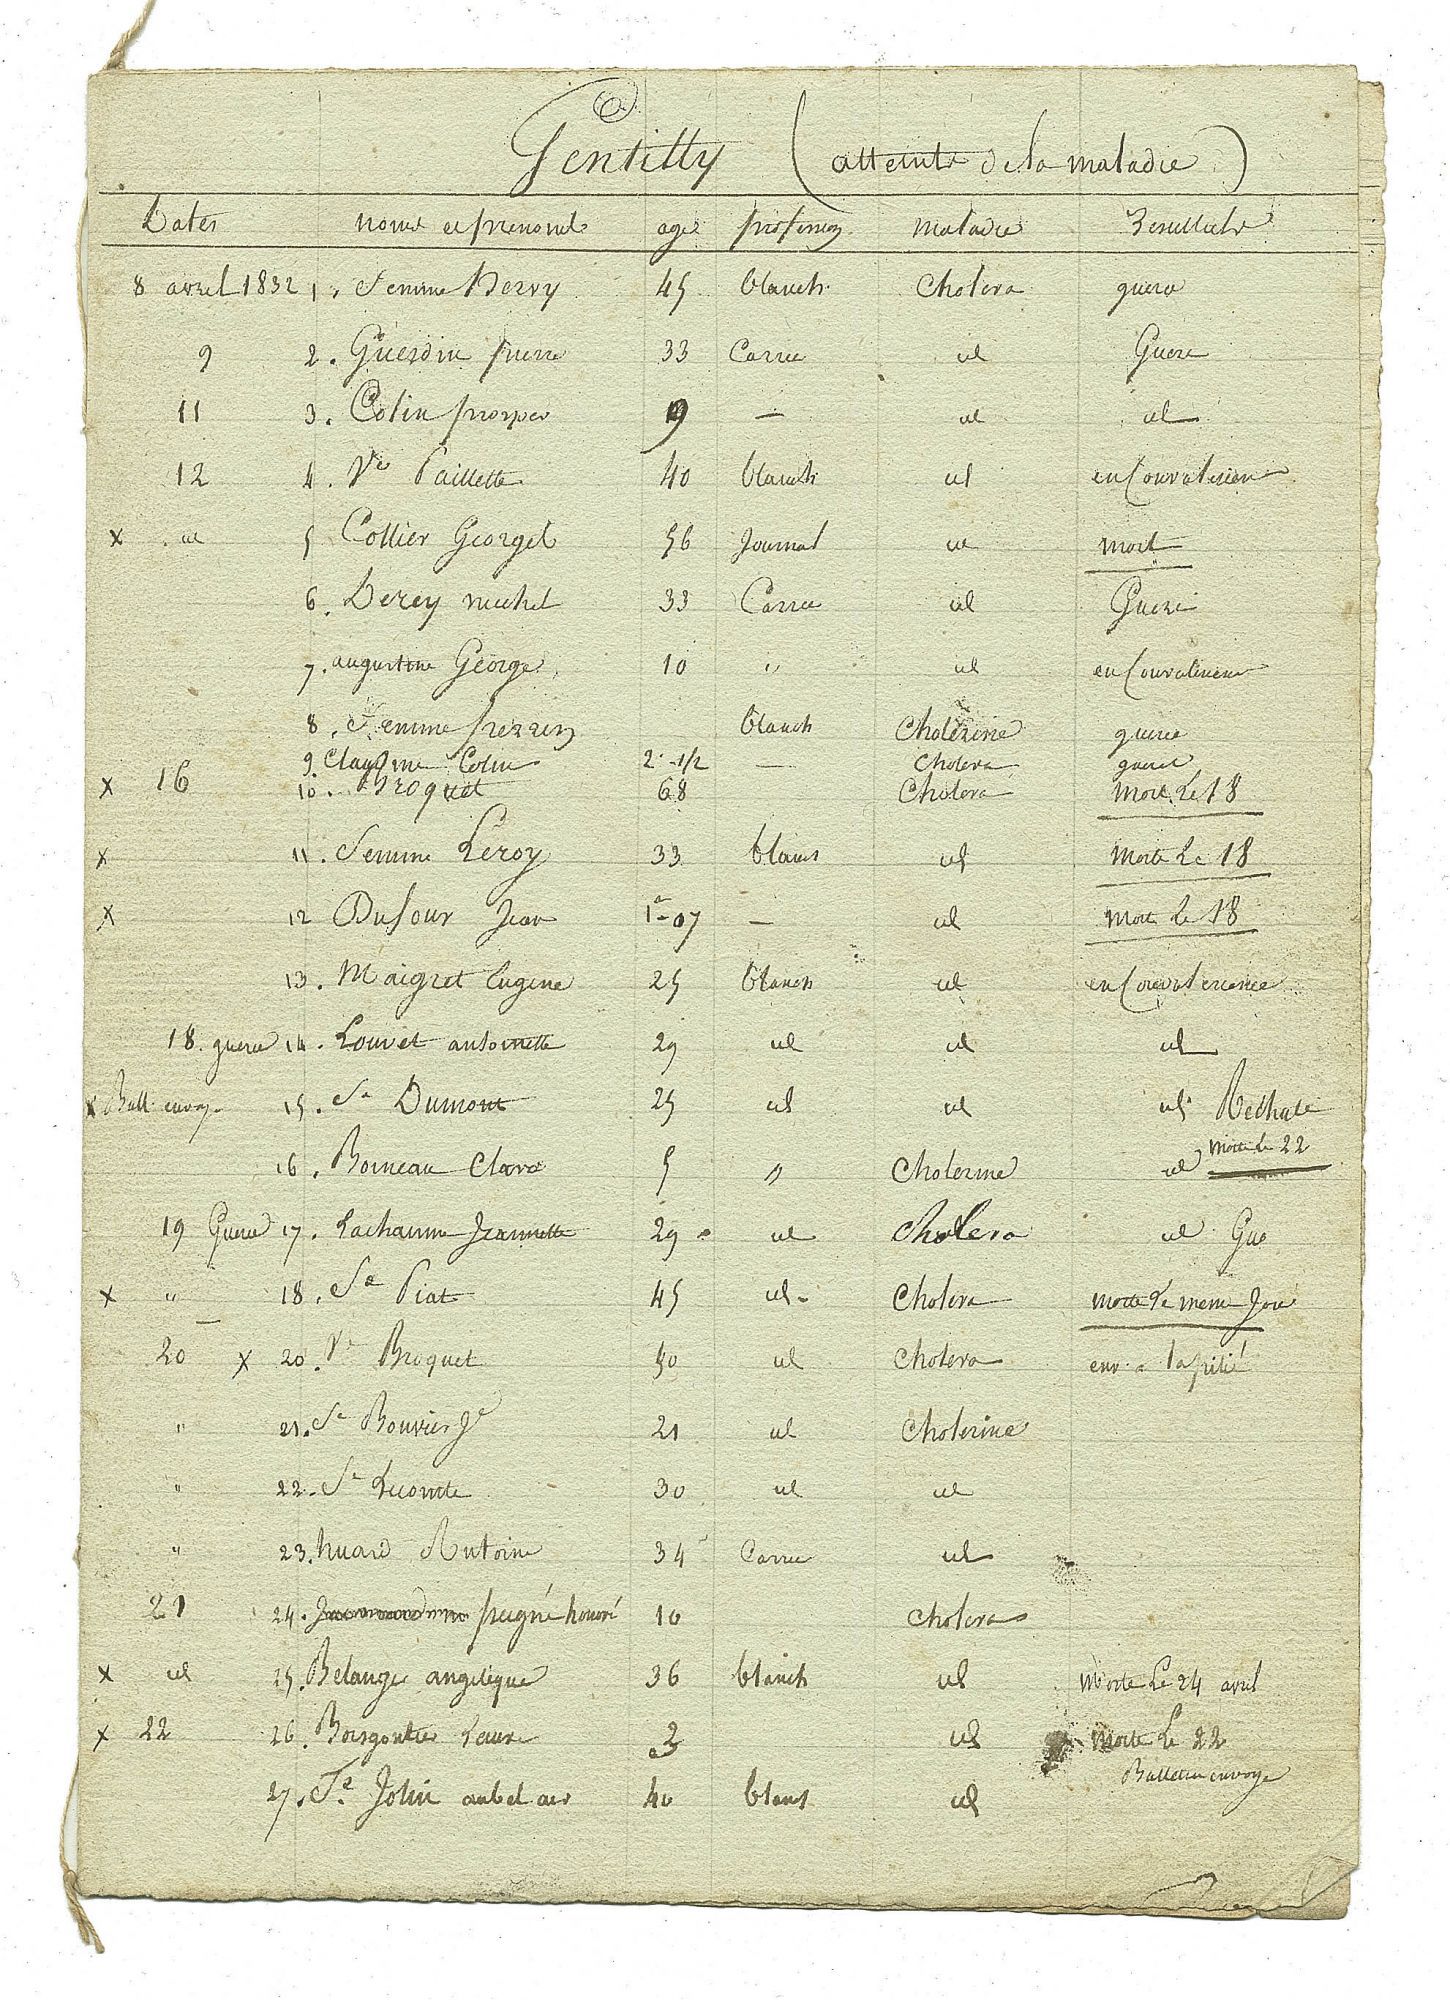 Gentilly (atteints de la maladie)
Dates noms et prenoms age profession maladie Resultats
8 avril 1832 1. femme Hervy 45 blanch. Cholera guerie
9 2. Guerdin pierre 33 Carrie id Gueri
11 3. Colin prosper 9 — id id
12 4. Ve Paillette 40 blanch id en Convalesien
x id 5 Collier Georget 56 Journal id mort
6. Derey michel 33 Carrie id Gueri
7. augustine George 10 " id en Convalesien
8. femme perrin blanch Cholerine guerie
9. Colin 2 - 1/2 — Cholera gueri
x 16 10. Broquet 68 Cholera Mort Le 18
x 11. femme Leroy 33 blanc id Morte Le 18
x 12 Dufour Jean 1 - 07 — id Mort Le 18
13. Maigret Eugene 25 blanch id en Convalescence
18. guerie 14. Louvet antoinette 29 id id id
x Bull. envoy. 15. fe Dumont 25 id id id Rechute
Morte le 22
16. Boineau Clara 5 " Cholerine id
19 Guerie 17. Lachaume Jeannette 29 id Cholera id Gue
x " 18. fe Piat 45 id Cholera morte Le meme Jou
20 x 20. Ve Broquet 50 id Cholera env. a la pitié
" 21. fe Bouvier Je 21 id Cholerine
" 22. fe Lecomte 30 id id
" 23. huard Antoine 34 Carrie id
21 24. peigné honoré 10 Cholera
x id 25. Belanger angelique 36 blanch id Morte Le 24 avril
x 22 26. Boisgontier Laure 2 id Morte Le 22
Bulletin envoye
27. fe Jolin aubel air 40 blanc id